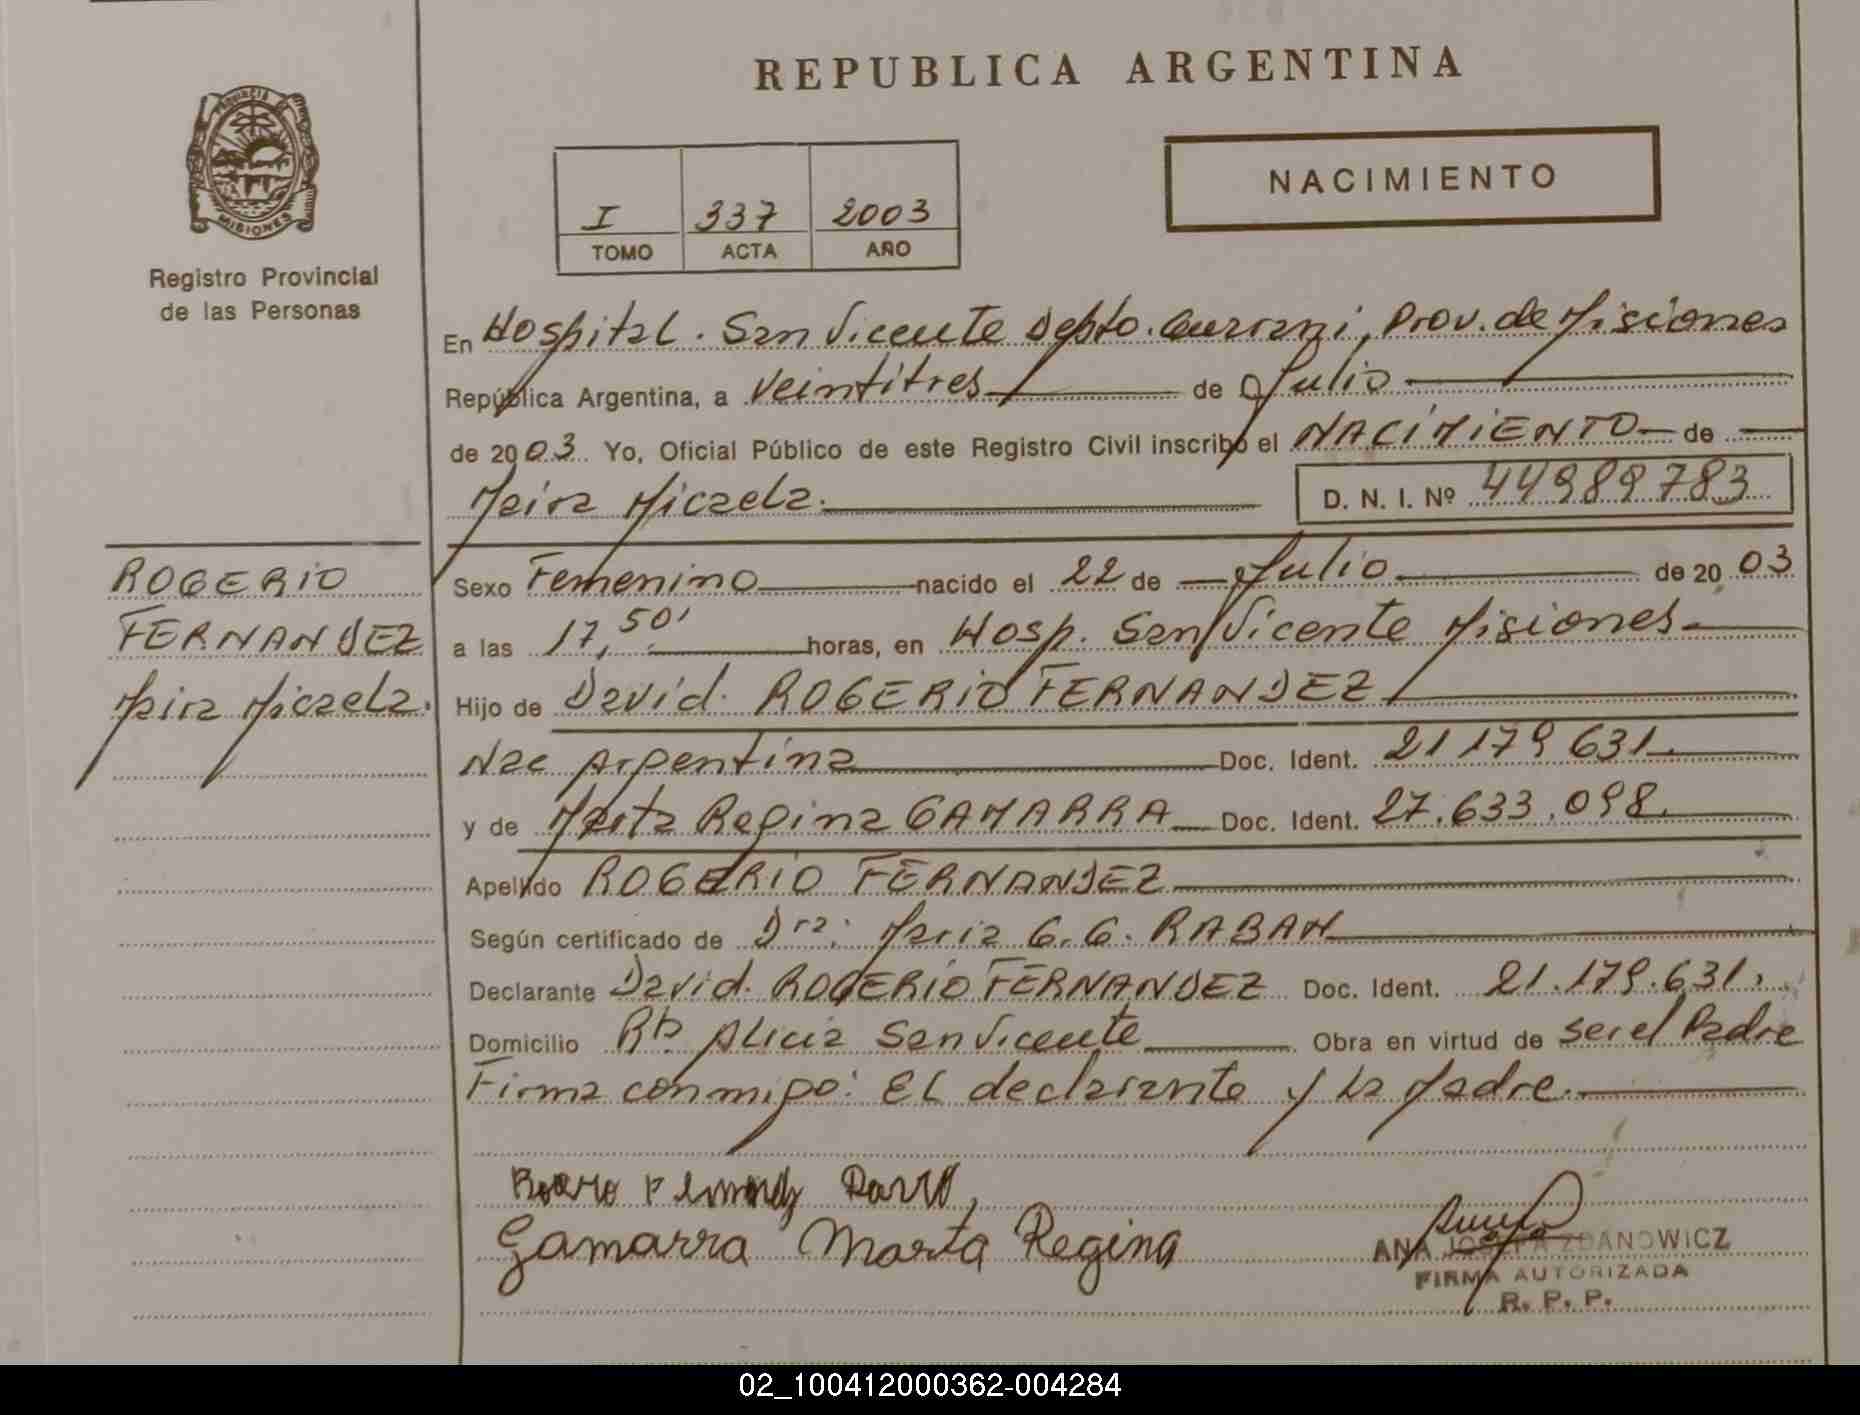 REPUBLICA ARGENTINA
PROVINCIA DE
MISIONES
Registro Provincial
de las Personas
I 337 2003
TOMO ACTA AÑO
NACIMIENTO
En Hospital. San Vicente Depto. Guarani, Prov. de Misiones
República Argentina, a veintitres de Julio
de 2003 Yo, Oficial Público de este Registro Civil inscribo el NACIMIENTO de
Maira Micaela. D. N. I. Nº 44989783
ROGERIO
FERNANDEZ
Maira Micaela.
Sexo Femenino nacido el 22 de Julio de 2003
a las 17,50' horas, en Hosp. San Vicente Misiones
Hijo de David. ROGERIO FERNANDEZ
Nac Argentina Doc. Ident. 21179631.
y de Marta Regina GAMARRA Doc. Ident. 27.633.098.
Apellido ROGERIO FERNANDEZ
Según certificado de Dra: Maria G. G. RABAN
Declarante David. ROGERIO FERNANDEZ Doc. Ident. 21.179.631.
Domicilio Bº Alicia San Vicente Obra en virtud de ser el Padre
Firma conmigo: El declarante y la Madre.
Gamarra Marta Regina
ANA JOSEFA ZDANOWICZ
FIRMA AUTORIZADA
R. P. P.
02_100412000362-004284